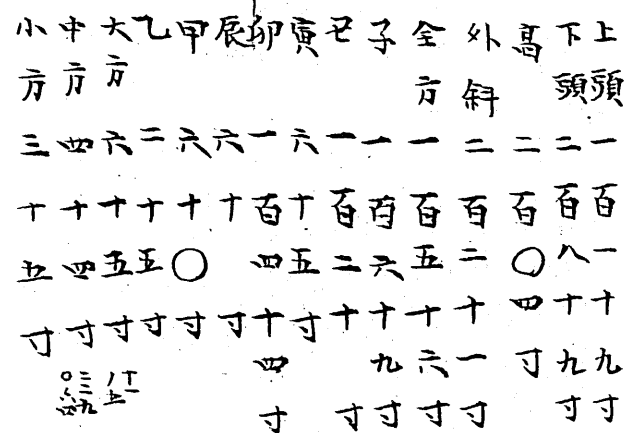 上頭一百一十九寸
下頭二百八十九寸
高二百〇四寸
外斜二百二十一寸
全方一百五十六寸
子一百六十九寸
丑一百二十寸
寅六十五寸
卯一百四十四寸
辰六十寸
甲六十〇寸
乙二十五寸
大方六十五寸
中方四十四寸
小方三十五寸